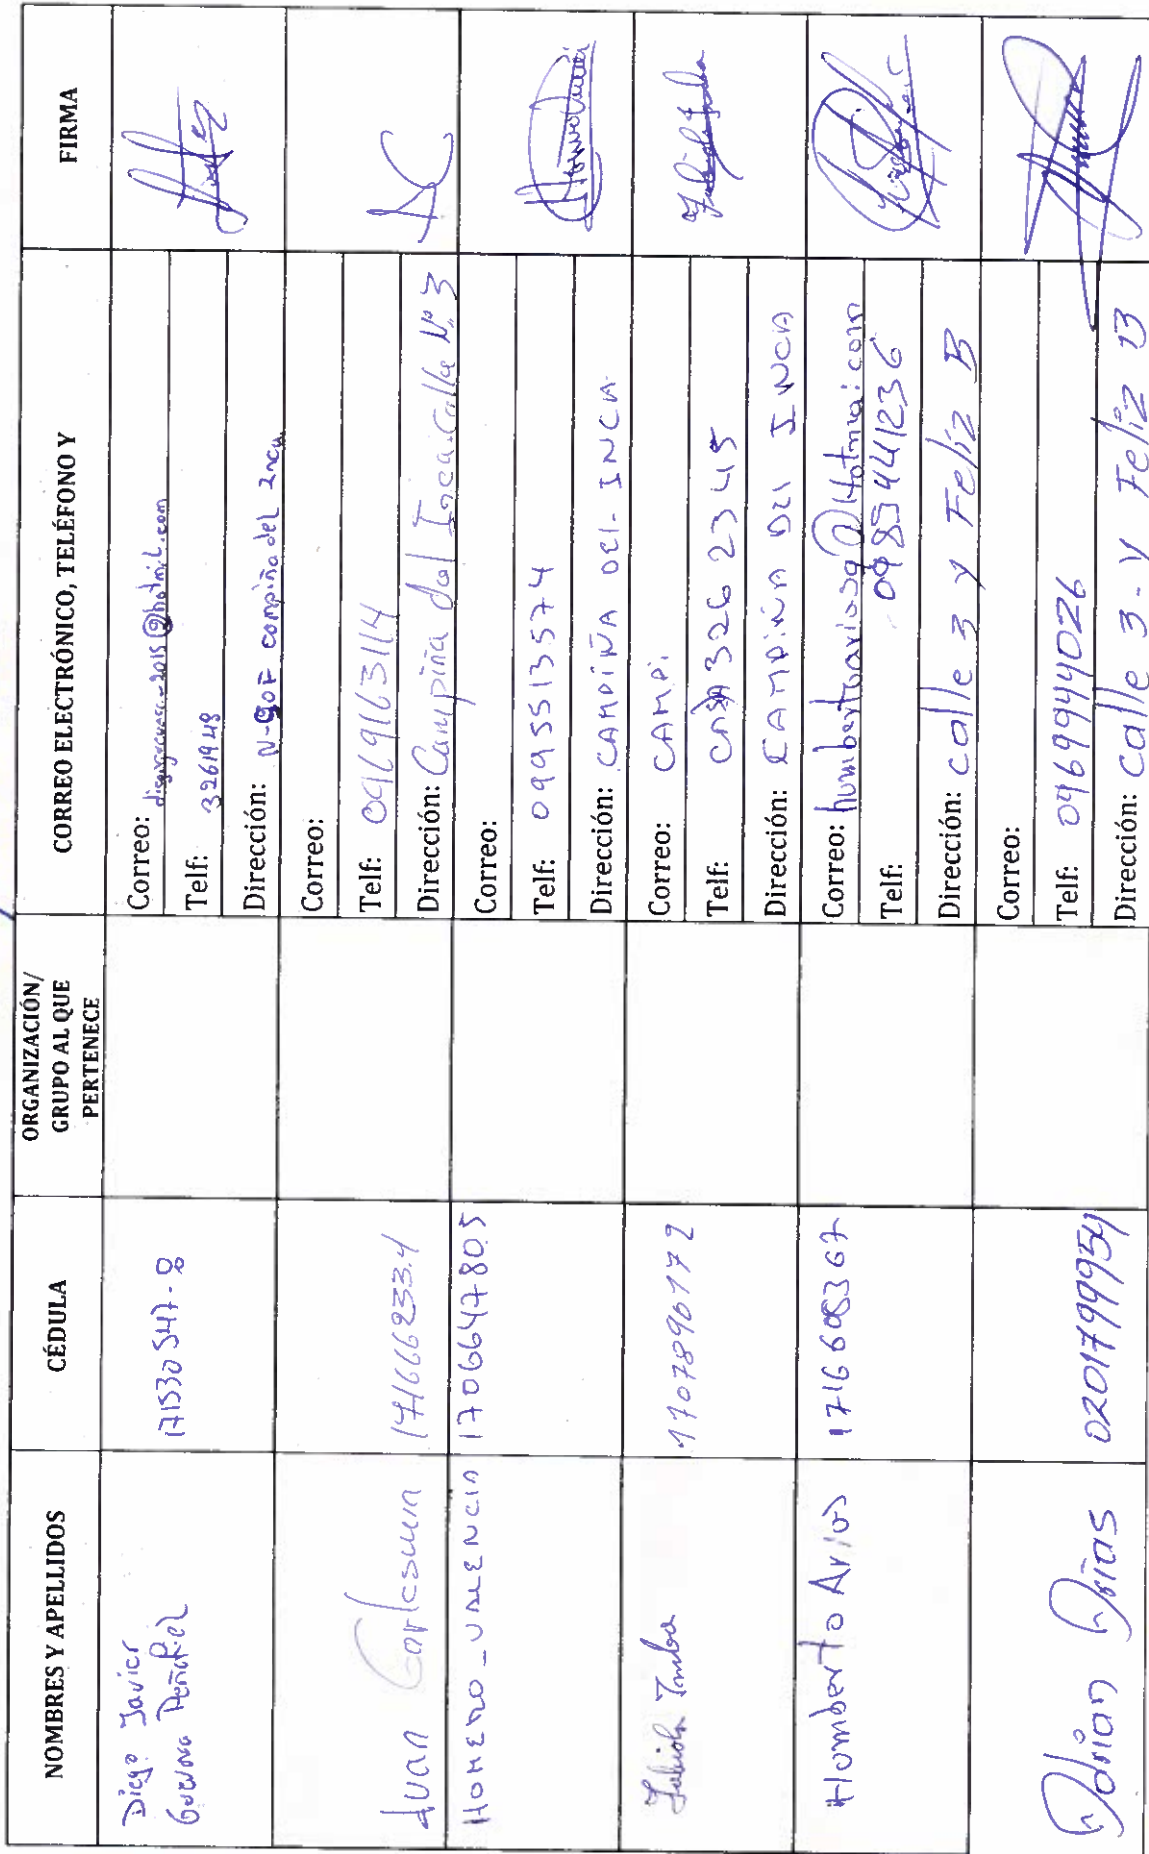 NOMBRES Y APELLIDOS
CÉDULA
ORGANIZACIÓN/
GRUPO AL QUE
PERTENECE
CORREO ELECTRÓNICO, TELÉFONO Y
FIRMA
Diego Javier
Peñafiel
171530547-8
Correo:
Telf: 3261948
Dirección: N-90F campiña del Inca
Juan
171666233.4
Correo:
Telf: 0969163114
Dirección: Campiña del Inca. Calle Nº 3
HOMERO_VALENCIA
170664780.5
Correo:
Telf: 0995513574
Dirección: CAMPIÑA DEL. INCA.
Fabiola
1707890172
Correo: CAMPI.
Telf: 326 23 45
Dirección: CAMPIÑA DEL INCA
Humberto Arias
Correo:
Telf: 0985441236
Dirección: calle 3 y Feliz B
Adrian Arias
0201799954
Correo:
Telf: 0969944026
Dirección: calle 3 - y Feliz 13